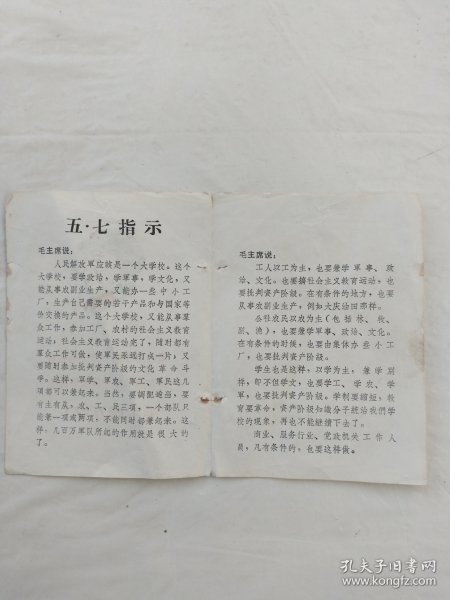 五·七指示
毛主席说：
人民解放军应该是一个大学校。这个
大学校，要学政治，学军事，学文化，又
能从事农副业生产，又能办一些中小工
厂，生产自己需要的若干产品和与国家等
价交换的产品。这个大学校，又能从事群
众工作，参加工厂、农村的社会主义教育
运动，社会主义教育运动完了，随时都有
群众工作可做，使军民永远打成一片，又
要随时参加批判资产阶级的文化革命斗
争。这样，军学、军农、军工、军民这几
项都可以兼起来。当然，要调配适当，要
有主有从，农、工、民三项，一个部队只
能兼一项或两项，不能同时都兼起来。这
样，几百万军队所起的作用就是很大的
了。
毛主席说：
工人以工为主，也要兼学军事、政
治、文化。也要搞社会主义教育运动，也
要批判资产阶级。在有条件的地方，也要
从事农副业生产，例如大庆油田那样。
公社农民以农为主（包括林、牧、
副、渔），也要兼学军事、政治、文化。
在有条件的时候，也要由集体办些小工
厂，也要批判资产阶级。
学生也是这样，以学为主，兼学别
样，即不但学文，也要学工、学农、学
军，也要批判资产阶级。学制要缩短，教
育要革命，资产阶级知识分子统治我们学
校的现象，再也不能继续下去了。
商业、服务行业、党政机关工作人
员，凡有条件的，也要这样做。
孔夫子旧书网
www.kongfz.com